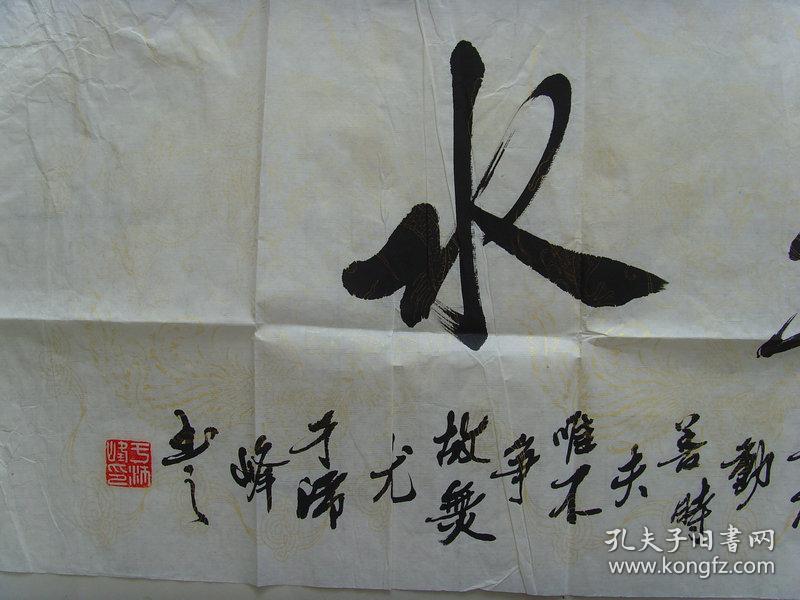 水
動
善時
夫
唯不
爭
故無
尤
于沛
峰
书之
于沛
峰印
孔夫子旧书网
www.kongfz.com